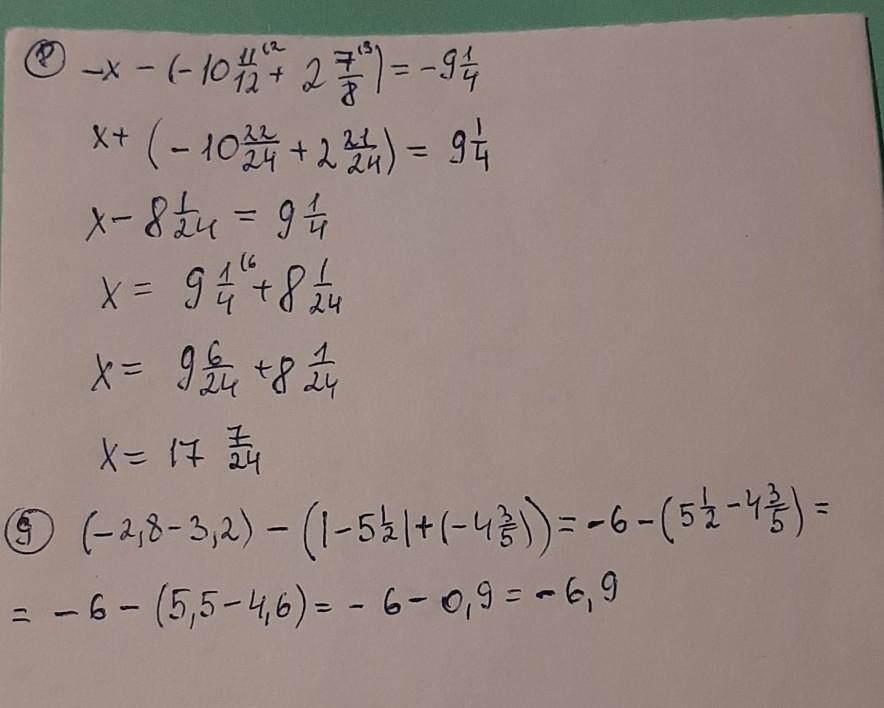 8 -x - (-10 11/12 (2 + 2 7/8 (3) = -9 1/4
x + (-10 22/24 + 2 21/24) = 9 1/4
x - 8 1/24 = 9 1/4
x = 9 1/4 (6 + 8 1/24
x = 9 6/24 + 8 1/24
x = 17 7/24
9 (-2,8 - 3,2) - (|-5 1/2| + (-4 3/5)) = -6 - (5 1/2 - 4 3/5) =
= -6 - (5,5 - 4,6) = -6 - 0,9 = -6,9